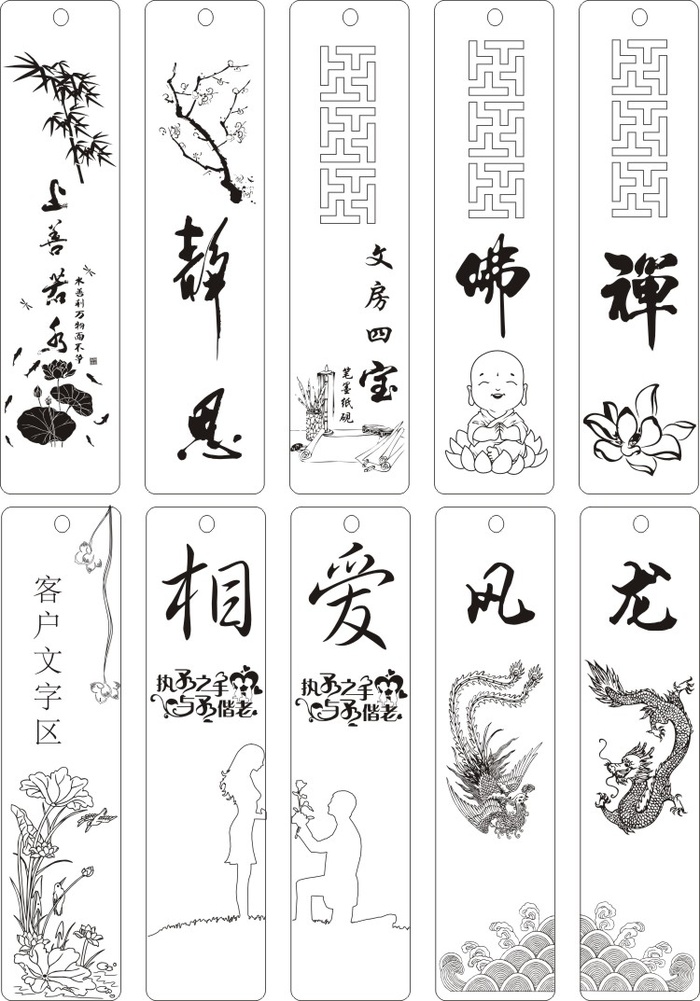 上善若水
水善利万物而不争
静思
文房四宝
笔墨纸砚
佛
禅
客户文字区
相
执子之手
与子偕老
爱
执子之手
与子偕老
凤
龙